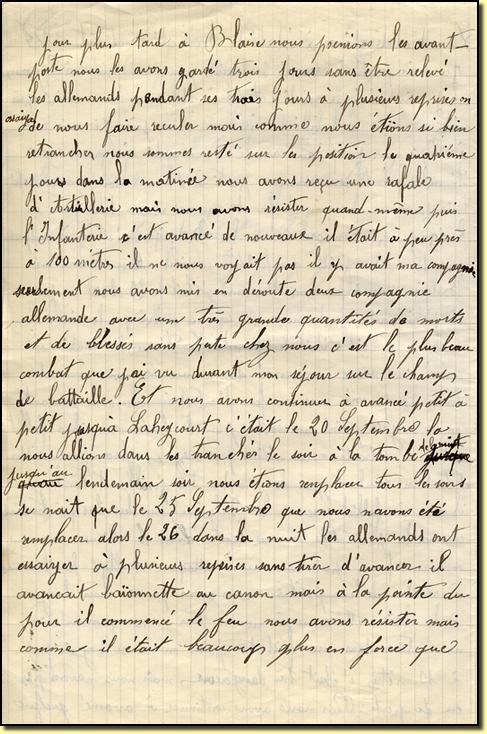 jour plus tard à Blaise nous prenions les avant-
poste nous les avons gardé trois jours sans être relevé
les allemands pendant ses trois jours à plusieurs reprises on
essaiyer de nous faire reculer mais comme nous étions si bien
retrancher nous sommes resté sur les position le quatriéme
jours dans la matinée nous avons reçu une rafale
d'Artillerie mais nous avons résister quand-même puis
l'Infanterie c'est avancé de nouveaux il était à peu près
à 100 métres il ne nous voyait pas il y avait ma compagnie
seulement nous avons mis en déroute deux compagnie
allemande avec une très grande quantités de morts
et de blessés sans perte chez nous c'est le plus beau
combat que j'ai vu durant mon séjour sur le champ
de battaille. Et nous avons continuer à avancé petit à
petit jusquà Laheycourt c'était le 20 Septembre la
nous allions dans les tranchér le soir à la tombé de la nuit
jusqu'au lendemain soir nous étions remplacer tous les soirs
se nait que le 25 Septembre que nous navons été
remplacer alors le 26 dans la nuit les allemands ont
essaiyer à plusieurs reprises sans tirer d'avancer il
avancait baïonnette au canon mais à la pointe du
jour il commencé le feu nous avons résister mais
comme il était beaucoup plus en force que